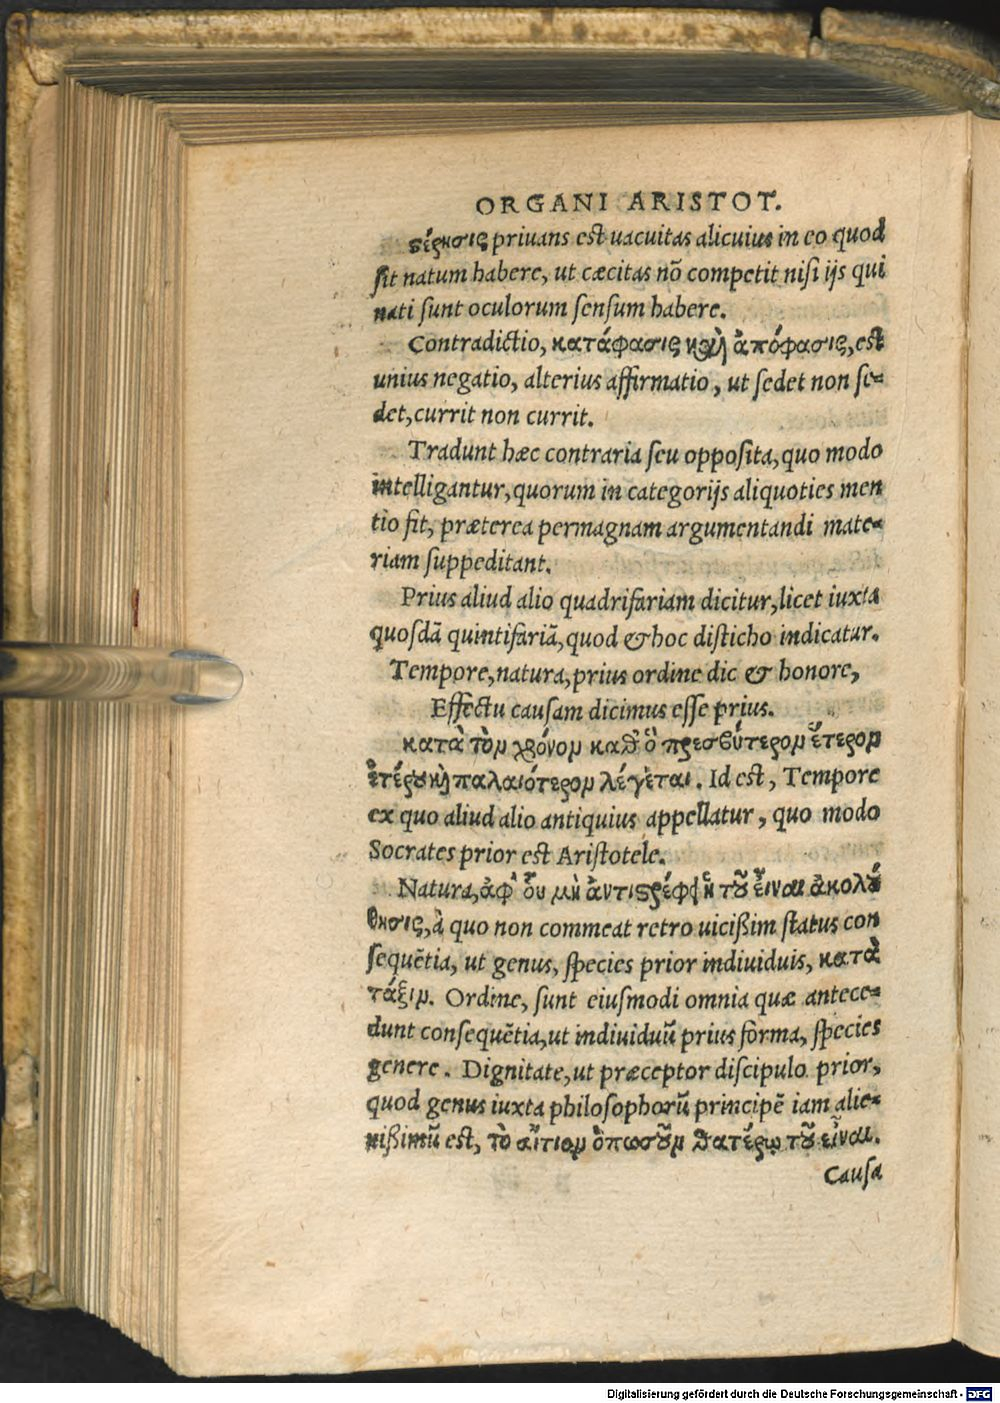 ORGANI ARISTOT.
ϛέρησις priuans est uacuitas alicuius in eo quod
sit natum habere, ut cæcitas nō competit nisi ijs qui
nati sunt oculorum sensum habere.
Contradictio, κατάφασις καὶ ἀπόφασις, est
unius negatio, alterius affirmatio, ut sedet non se=
det, currit non currit.
Tradunt hæc contraria seu opposita, quo modo
intelligantur, quorum in categorijs aliquoties men
tio fit, præterea permagnam argumentandi mate=
riam suppeditant.
Prius aliud alio quadrifariam dicitur, licet iuxta
quosdā quintifariā, quod & hoc disticho indicatur.
Tempore, natura, prius ordine dic & honore,
Effectu causam dicimus esse prius.
κατὰ τὸν χρόνον καθ' ὃ πρεσβύτερον ἕτερον
ἑτέρου καὶ παλαιότερον λέγεται. Id est, Tempore
ex quo aliud alio antiquius appellatur, quo modo
Socrates prior est Aristotele.
Natura, ἀφ' οὗ μὴ ἀντιϛρέφει ἡ τοῦ εἶναι ἀκολού
θησις, à quo non commeat retro uicißim status con
sequētia, ut genus, species prior indiuiduis, κατὰ
τάξιν. Ordine, sunt eiusmodi omnia quæ antece=
dunt consequētia, ut indiuiduū prius forma, species
genere. Dignitate, ut præceptor discipulo prior,
quod genus iuxta philosophorū principē iam alie=
nißimū est, τὸ αἴτιον ὁπωσοῦν θατέρῳ τοῦ εἶναι.
Causa
Digitalisierung gefördert durch die Deutsche Forschungsgemeinschaft - DFG